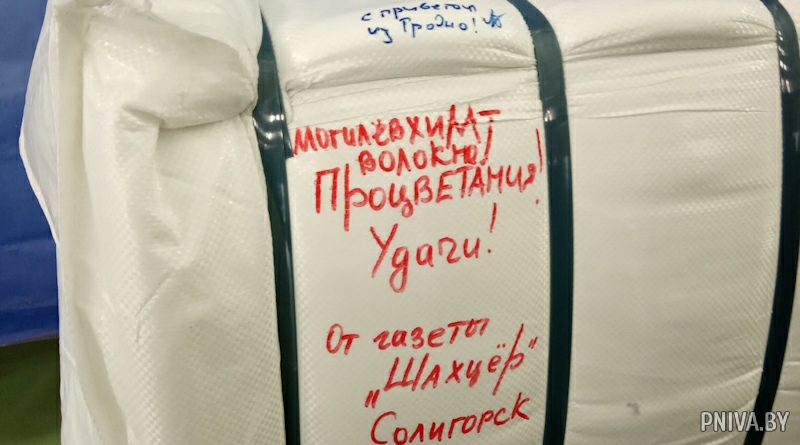 с приветом
из Гродно!
МОГИЛЁВХИМ
ВОЛОКНО!
ПРОЦВЕТАНИЯ!
Удачи!
От газеты
„Шахцёр"
Солигорск
PNIVA.BY